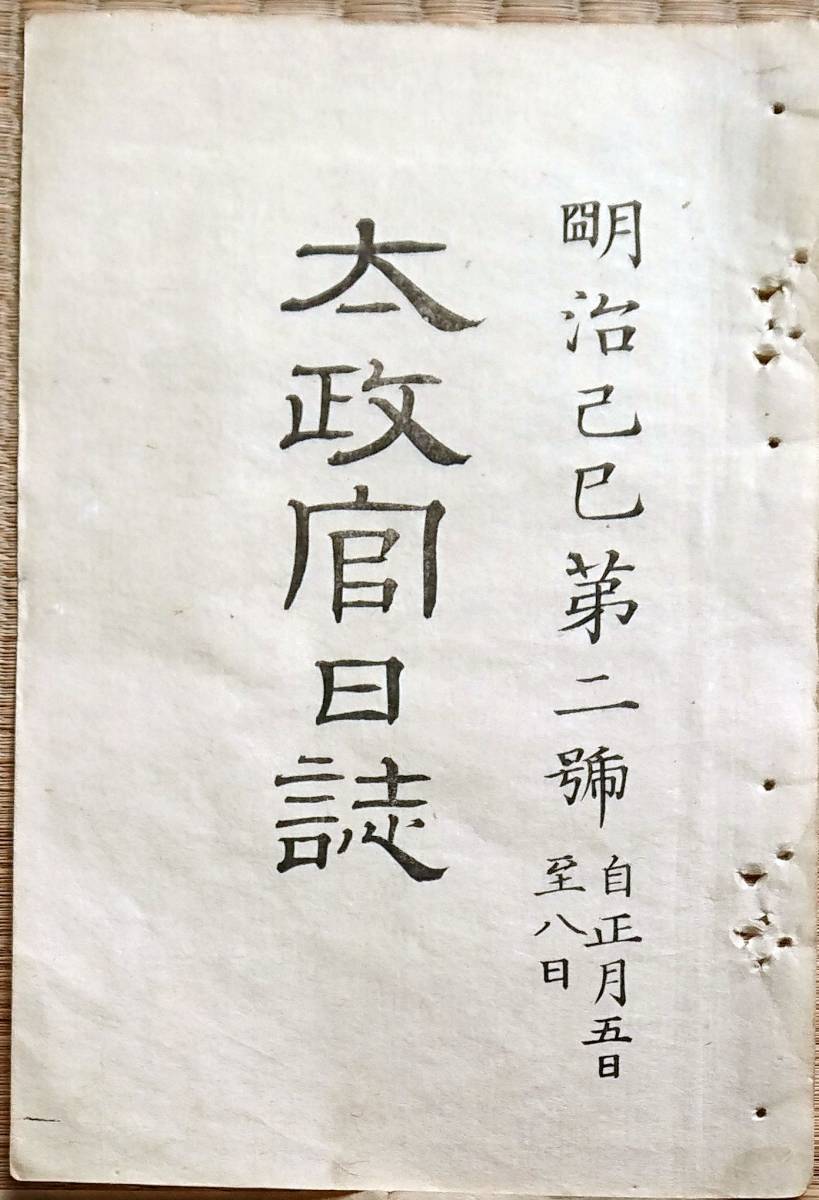 明治己巳第二號
自正月五日
至八日
太政官日誌